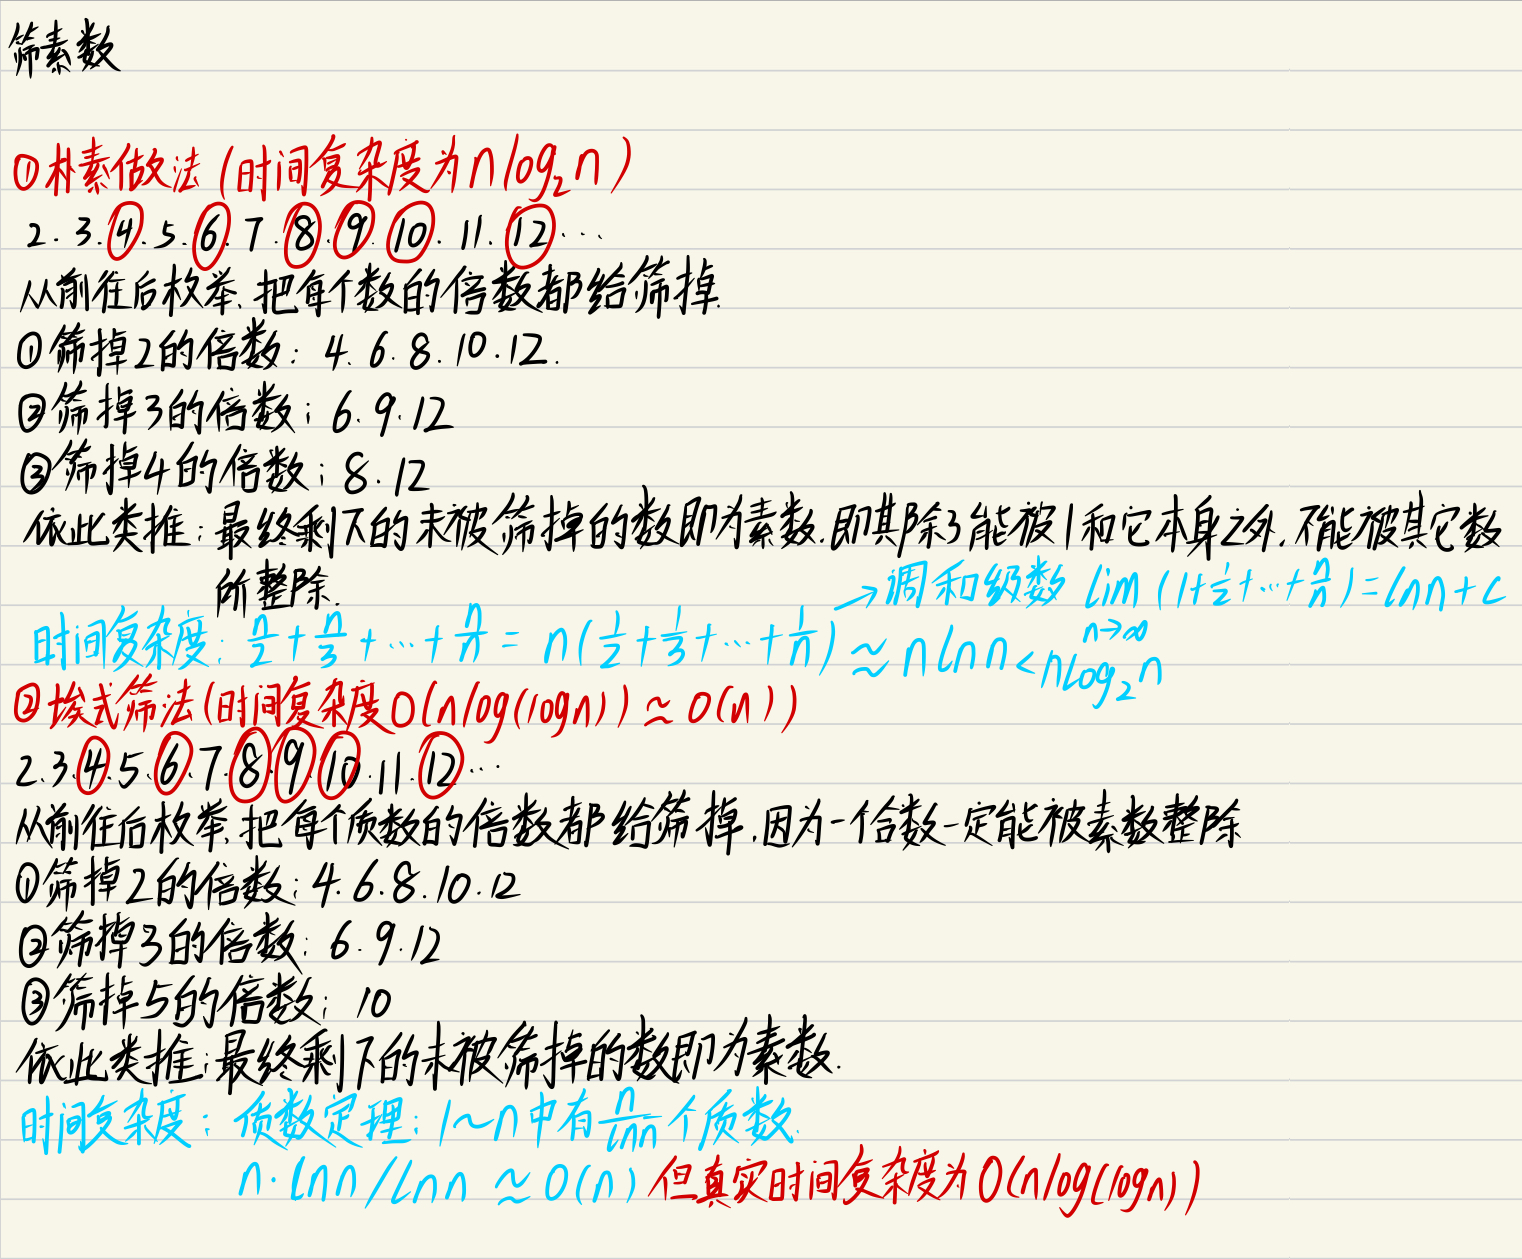 筛素数
①朴素做法(时间复杂度为nlog₂n)
2.3.4.5.6.7.8.9.10.11.12...
从前往后枚举,把每个数的倍数都给筛掉.
①筛掉2的倍数:4.6.8.10.12.
②筛掉3的倍数:6.9.12
③筛掉4的倍数:8.12
依此类推:最终剩下的未被筛掉的数即为素数.即其除了能被1和它本身之外,不能被其它数
所整除.
→调和级数 lim n→∞ (1+1/2+…+n/n)=lnn+c
时间复杂度:n/2+n/3+…+n/n=n(1/2+1/3+…+1/n)≈nlnn<nlog₂n
②埃式筛法(时间复杂度O(nlog(logn))≈O(n))
2.3.4.5.6.7.8.9.10.11.12...
从前往后枚举,把每个质数的倍数都给筛掉.因为一个合数一定能被素数整除
①筛掉2的倍数:4.6.8.10.12
②筛掉3的倍数:6.9.12
③筛掉5的倍数:10
依此类推:最终剩下的未被筛掉的数即为素数.
时间复杂度:质数定理:1~n中有n/lnn个质数.
n·lnn/lnn≈O(n) 但真实时间复杂度为O(nlog(logn))